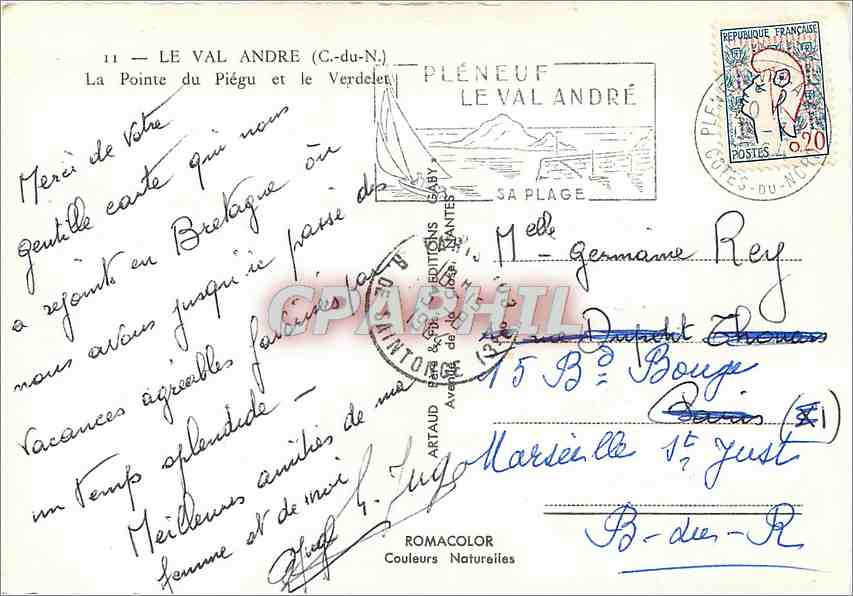 11 — LE VAL ANDRE (C.-du-N.)
La Pointe du Piégu et le Verdelet
Merci de votre
gentille carte qui nous
a rejoints en Bretagne où
nous avons jusqu'ici passé des
vacances agréables favorisées par
un temps splendide —
Meilleures amitiés de ma
femme et de moi
PLÉNEUF
LE VAL ANDRÉ
SA PLAGE
REPUBLIQUE FRANÇAISE
0,20
POSTES
CÔTES-DU-NORD
PARIS
R. DE SAINTONGE (3e)
ARTAUD Père & Fils EDITIONS "GABY"
Avenue de la Close, NANTES
CPARPHIL
Melle Germaine Rey
rue Dupetit Thouars
15 Bd Bouge
Paris
Marseille St Just
B-du-R
ROMACOLOR
Couleurs Naturelles